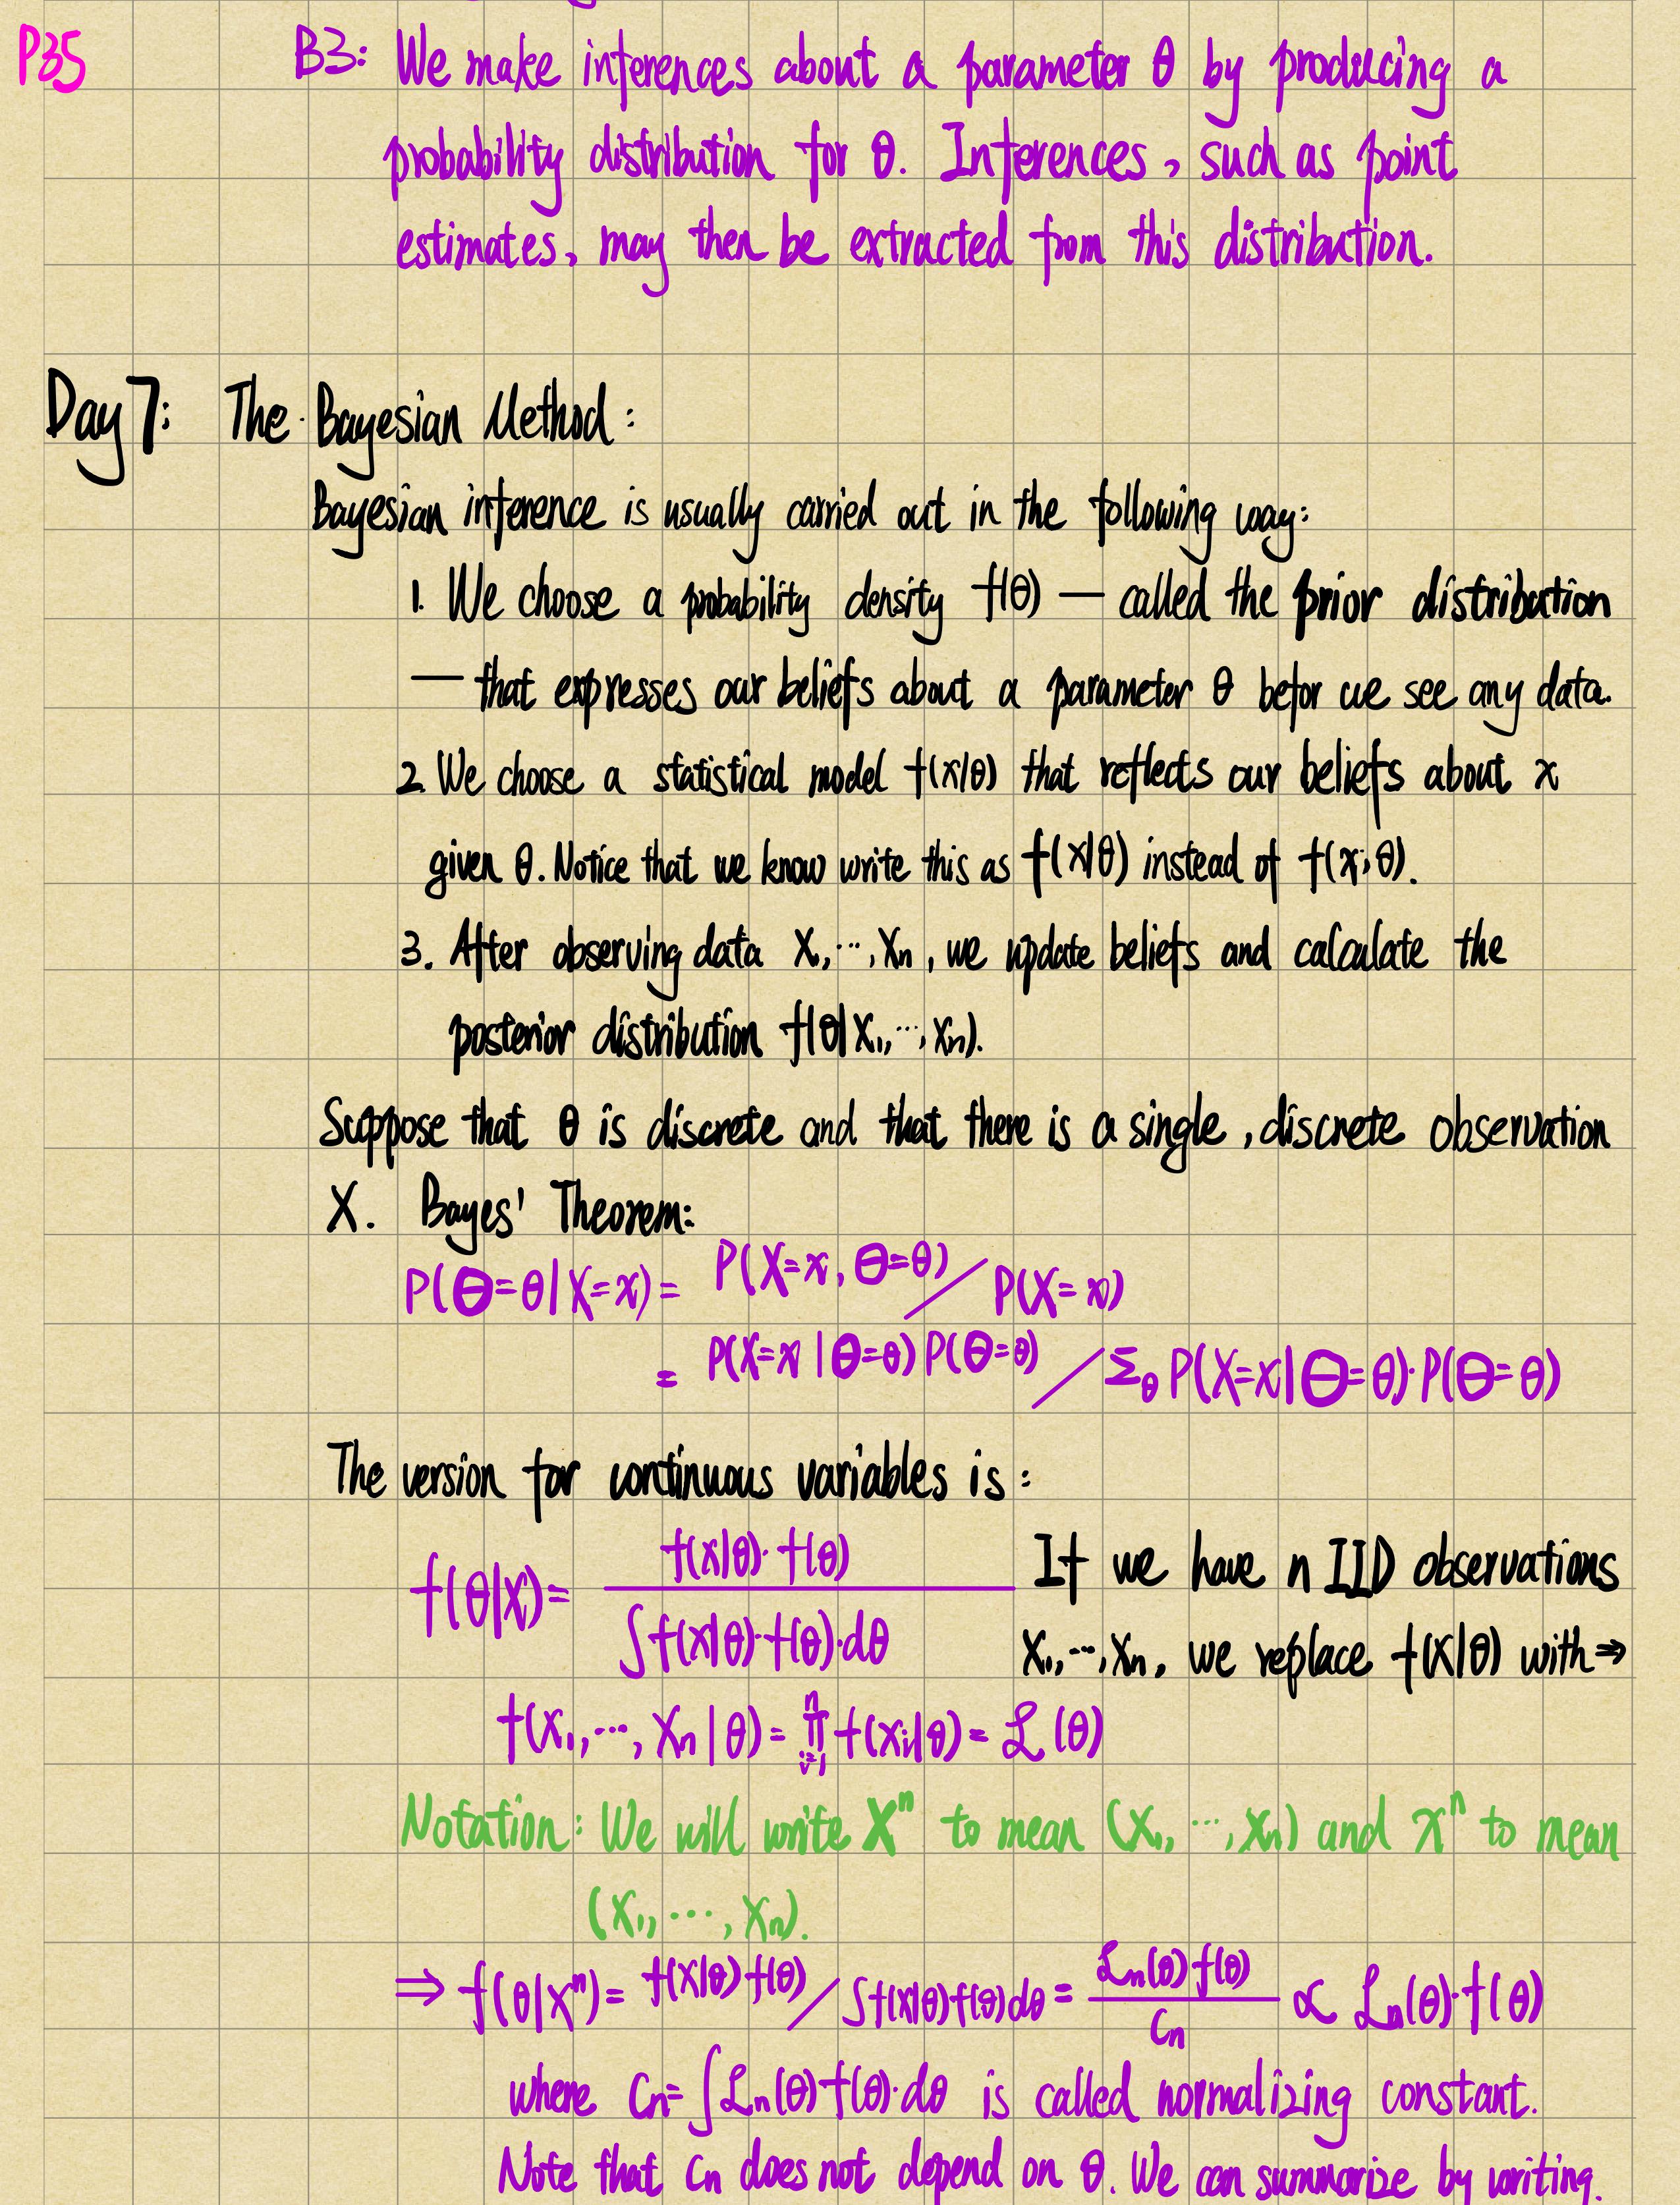 P35
B3: We make inferences about a parameter θ by producing a
probability distribution for θ. Inferences, such as point
estimates, may then be extracted from this distribution.
Day 7: The Bayesian Method:
Bayesian inference is usually carried out in the following way:
1. We choose a probability density f(θ) — called the prior distribution
— that expresses our beliefs about a parameter θ befor we see any data.
2. We choose a statistical model f(x|θ) that reflects our beliefs about x
given θ. Notice that we know write this as f(x|θ) instead of f(x;θ).
3. After observing data X₁,⋯,Xn, we update beliefs and calculate the
posterior distribution f(θ|X₁,⋯,Xn).
Suppose that θ is discrete and that there is a single, discrete observation
X. Bayes' Theorem:
P(Θ=θ|X=x) = P(X=x, Θ=θ) / P(X=x)
= P(X=x|Θ=θ) P(Θ=θ) / Σθ P(X=x|Θ=θ)·P(Θ=θ)
The version for continuous variables is:
f(θ|x) = f(x|θ)·f(θ) / ∫f(x|θ)·f(θ)·dθ
If we have n IID observations
X₁,⋯,Xn, we replace f(x|θ) with ⇒
f(x₁,⋯,xn|θ) = ∏ⁿi=1 f(xi|θ) = ℒ(θ)
Notation: We will write Xⁿ to mean (X₁,⋯,Xn) and xⁿ to mean
(x₁,⋯,xn).
⇒ f(θ|xⁿ) = f(x|θ) f(θ) / ∫f(x|θ)f(θ)dθ = ℒn(θ) f(θ) / Cn ∝ ℒn(θ)·f(θ)
where Cn = ∫ℒn(θ)f(θ)·dθ is called normalizing constant.
Note that Cn does not depend on θ. We can summarize by writing.